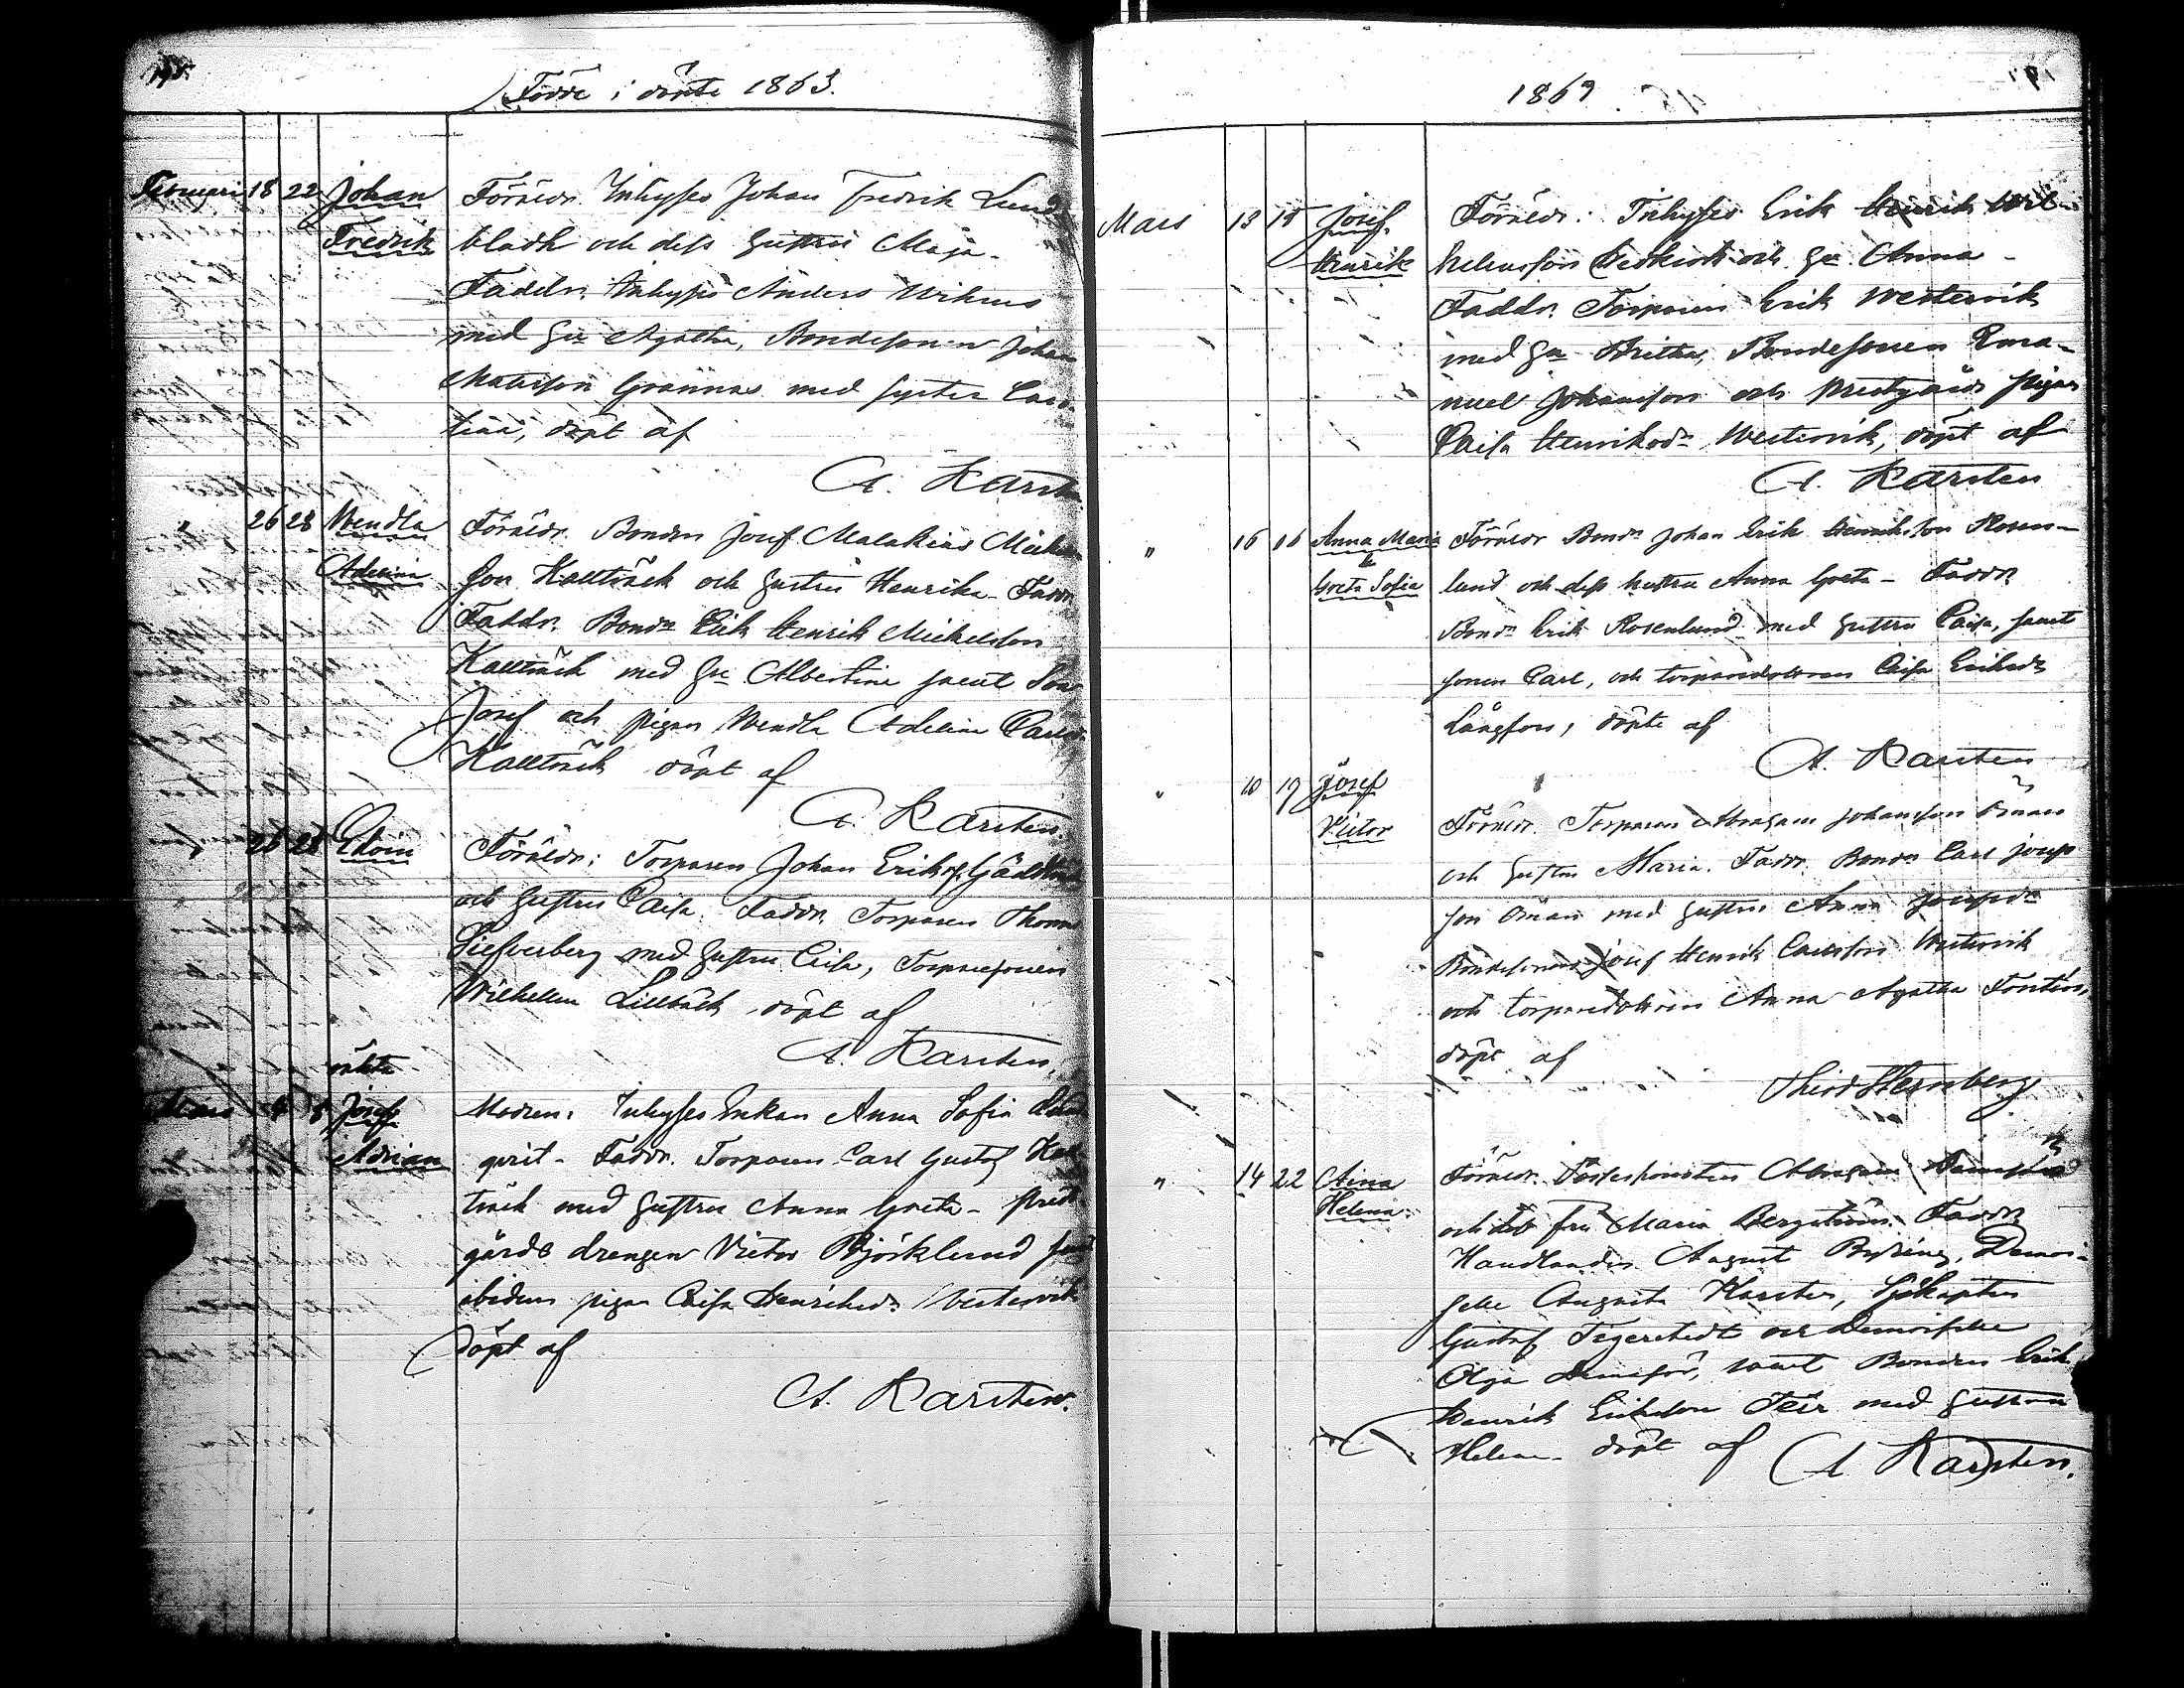 Födde i döpte 1863.
Februari 18 22 Johan Fredrik
Föräldr. Inhyses Johan Fredrik Lund
bladh och dess hustru Maja.
Faddr. Inhyses Anders
med Hu Agatha, Bondesonen Johan
Mattsson Grannas med syster Caro
lina, döpt af
A. Karsten
" 26 28 Wendla Adelina
Föräldr. Bonden Josef Malakias Mickels
son Kallträsk och hustru Henrika. Faddr
Faddr. Bondn Erik Henrik Mickelsson
Kallträsk med Hu Albertina samt Son
Josef och pigan Wendla Adelina Carlsd
Kallträsk döpt af
A. Karsten.
26 28 Edvin
Föräldr: Torparen Johan Eriks.
och hustru Caisa. Faddr. Torparen Thomas
Silfverberg med hustru Caisa, Torparesonen
Wilhelm Lillbäck, döpt af
A. Karsten,
oäkta
Mars 4 8 Josef Adrian
Modren: Inhyses Enkan Anna Sofia
qvist. Faddr. Torparen Carl Gustaf Kal
träsk med hustru Anna Greta. prest
gårds drengen Victor Björklund
ibidem pigan Caisa Henriksdr Westervik
döpt af
A. Karsten.
1869
Mars 13 15 Josef Henrik
Föräldr: Inhyses Erik Henrik Wil-
helmsson och Hu Anna
Faddr. Torparen Erik Westervik
med Hu Britha, Bondesonen Ema-
nuel Johansson och prestgårds pigan
Caisa Henriksdr Westervik, döpt af
A. Karsten
" 16 16 Anna Maria & Greta Sofia
Föräldr Bondn Johan Erik Henriksson Rosen-
lund och dess hustru Anna Greta - Faddr
Bondn Erik Rosenlund med hustru Caisa, samt
sonen Carl, och torparedottren Caisa Eriksdr
Långfors, döpte af
A. Karsten
" 10 19 Josef Victor
Föräldr. Torparen Abraham Johansson Öman
och hustru Maria. Faddr. Bondn Carl Josefs
son Öman med hustru Anna Josefsdr
Bondesonen Josef Henrik Carlsson Westervik
och torparedottren Anna Agatha
döpt af
Theod Hernberg
" 14 22 Aina Helena
Föräldr. Abraham
och fru Maria Bergström. Faddr
Handlanden August Demoi-
selle Augusta Karsten, Sjökapten
Gustaf Tegerstedt och Demoiselle
Olga samt Bonden Erik
Henrik Eriksson Teir med hustru
Helena. döpt af A Karsten.